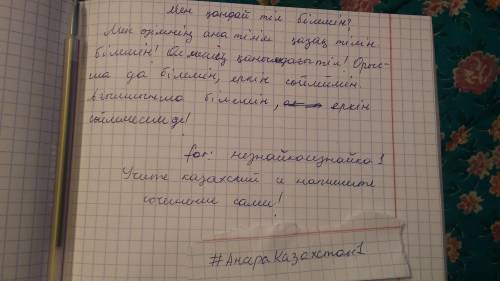 Мен қандай тіл білемін?
Мен өзімнің ана тілім қазақ тілін
білемін! Ол менің қанымдағы тіл! Орыс-
ша да білемін, еркін сөйлймін.
Ағылшынша білемін, еркін
сөйлмесем де!
for: незнайканезнайка1
Учите казахский и напишите
сочинение сами!
#АнараКазахстан1